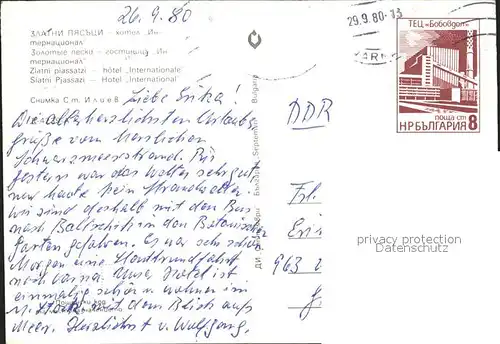 26.9.80
ЗЛАТНИ ПЯСЪЦИ — хотел „Ин-
тернационал"
Золотые пески — гостиница „Ин-
тернационал"
Zlatni piassatzi — hôtel „Internationale"
Slatni Pjassazi — Hotel „International"
Снимка Ст. Илиев
Liebe Erika!
Die allerherzlichsten Urlaubs-
grüße vom herrlichen
Schwarzmeerstrand. Bis
gestern war das Wetter sehr gut
nur heute kein Strandwetter.
Wir sind deshalb mit dem Bus
nach Baltschik in den Botanischen
Garten gefahren. Es war sehr schön
Morgen eine Stadtrundfahrt
nach Varna. Unser Hotel ist
einmalig schön wohnen im
mit dem Blick aufs
Meer. Herzlichst v. Wolfgang.
Български
Septemvri Bulgaria
29.9.80-13
ТЕЦ „Бобовдол"
поща ст
НР БЪЛГАРИЯ 8
DDR
Frl.
Eri
963
privacy protection
Datenschutz